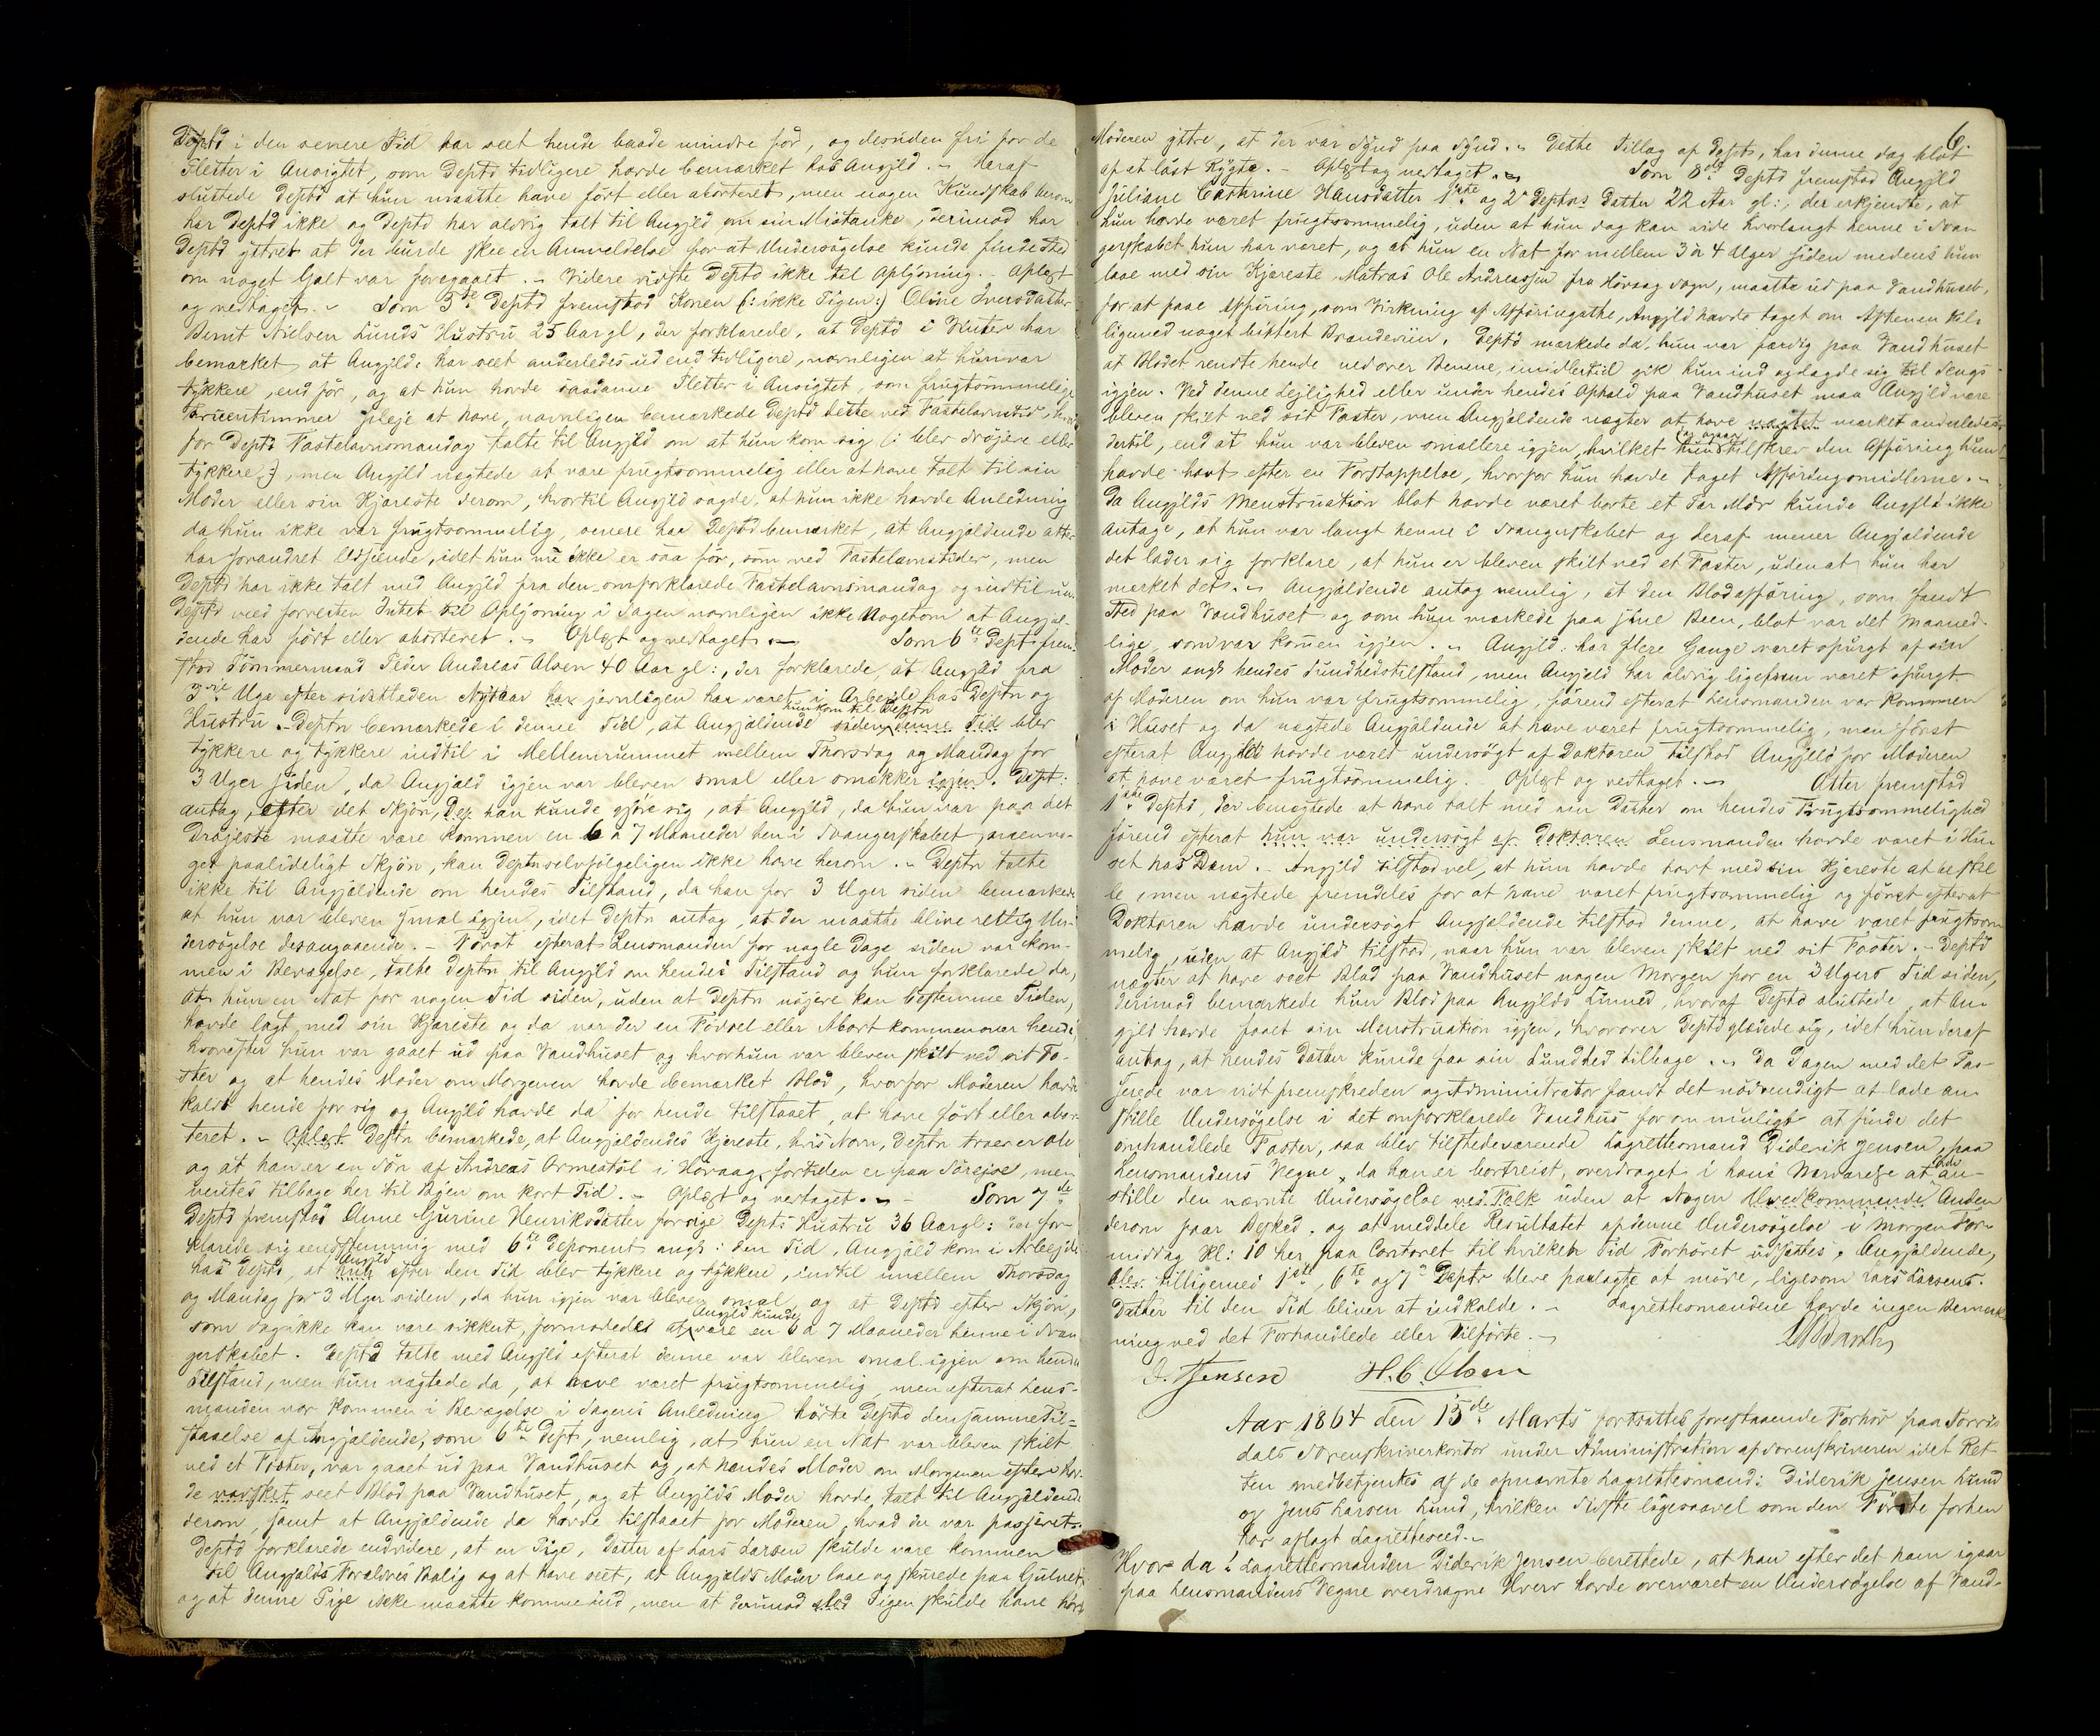 Deptd i den senere Tid har seet hende baade mindre før, og desuden fri for de
Pletter i Ansigtet, som Deptd tidligere havde bemærket hos Angjld. - Heraf
sluttede Deptd at hun maatte have født eller aborteret, men nogen Kundskab herom
har Deptd ikke og Deptd har aldrig talt til Angjld om sin Mistanke, derimod har
Deptd yttret at der burde skee en Anmeldelse for at Undersøgelse kunde finde Sted
om noget Galt var foregaaet. - Videre vidste Deptd ikke til Oplysning. - Oplæst
og vedtaget. - Som 5te Deptd fremstod Konen (: ikke Pigen:) Oline Iversdatter
Bernt Nielsen Lunds Hustru 25 Aar gl, der forklarede, at Deptd i Vinter har
bemærket at Angjld: har seet anderledes ud end tidligere, navnligen at hun var
tykkere, end før, og at hun havde saadanne Pletter i Ansigtet, som frugtsommelige
Fruentimmer pleje at have, navnligen bemærkede Deptd dette ved Fastelavnstid,
for Deptd Fastelavnsmandag talte til Angjld om at hun kom sig (: blev drøjere eller
tykkere :), men Angjld nægtede at være frugtsommelig eller at have talt til sin
Moder eller sin Kjæreste derom, hvortil Angjld sagde, at hun ikke havde Anledning
da hun ikke var frugtsommelig, senere har Deptd bemærket, at Angjældende atter
har forandret Udseende, idet hun nu ikke er saa før, som ved Fastelavnstider, men
Deptd har ikke talt med Angjld fra den omforklarede Fastelavnsmandag og indtil nu.
Deptd veed forresten Intet til Oplysning i Sagen navnligen ikke Noget om at Angjæl-
dende har født eller aborteret. - Oplæst og vedtaget. - Som 6te Dept frem-
stod Tømmermand Peder Andreas Olsen 40 Aar gl:, der forklarede, at Angjld fra
3die Uge efter sidstleden Nytaar har jevnligen har været i Arbeide hos Deptn og
Hustru. - Deptn bemærkede i denne Tid, at Angjældende siden hun kom til Deptn denne Tid blev
tykkere og tykkere indtil i Mellemrummet mellem Thorsdag og Mandag for
3 Uger siden, da Angjæld igjen var bleven smal eller smækker igjen. Dept:
antog, efter det Skjøn, Dep. han kunde gjøre sig, at Angjld, da hun var paa det
Drøjeste maatte være kommen en 6 à 7 Maaneder hen i Svangerskabet men no-
get paalideligt Skjøn, kan Deptn selvfølgeligen ikke have herom. - Deptn talte
ikke til Angjældende om hendes Tilstand, da han for 3 Uger siden bemærkede
at hun var bleven smal igjen, idet Deptn antog, at der maatte blive rettlig Un-
dersøgelse desangaaende. - Først efterat Lensmanden for nogle Dage siden var kom-
men i Bevægelse, talte Deptn til Angjld om hendes Tilstand og hun forklarede da,
at hun en Nat for nogen Tid siden, uden at Deptn nøjere kan bestemme Tiden,
havde lagt med sin Kjæreste og da var der en Fødsel eller Abort kommen over hende
hvorefter hun var gaaet ud paa Vandhuset og hvor hun var bleven skilt ved sit Fo-
ster og at hendes Moder om Morgenen havde bemærket Blod, hvorfor Moderen havde
kaldt hende for sig og Angjld havde da for hende tilstaaet, at have født eller abor-
teret. - Oplæst. Deptn bemærkede, at Angjældendes Kjæreste, hvis Navn, Deptn troer er Ole
og at han er en Søn af Andreas Ormestøl i Høvaag, fortiden er paa Sørejse, men
ventes tilbage her til Byen om kort Tid. - Oplæst og vedtaget. - Som 7de
Deptd fremstod Anne Gurine Henriksdatter forrige Depts Hustru 36 Aar gl: der for-
klarede sig eenstemmig med 6te Deponent angd: den Tid, Angjæld kom i Arbejde
hos Deptd, at hun Angjld efter den Tid blev tykkere og tykkere, indtil mellem Thorsdag
og Mandag for 3 Uger siden, da hun igjen var bleven smal og at Deptd efter Skjøn,
som dog ikke kan være sikkert, formodede at Angjld kunde være en 6 à 7 Maaneder henne i Svan-
gerskabet. Deptd talte med Angjld efterat denne var bleven smal igjen om hendes
Tilstand, men hun nægtede da, at have været frugtsommelig, men efterat Lens-
manden var kommen i Bevægelse i Sagens Anledning hørte Deptd den samme Til-
staaelse af Angjældende, som 6te Dept, nemlig, at hun en Nat var bleven skilt
ved et Foster, var gaaet ud paa Vandhuset og, at hendes Moder om Morgenen efter hav-
de vadsket seet Blod paa Vandhuset, og at Angjlds Moder havde talt til Angjældende
derom, samt at Angjældende da havde tilstaaet for Moderen, hvad der var passeret.
Deptd forklarede endvidere, at en Pige, Datter af Lars Larsen skulde være kommen
til Angjælds Forældres Bolig og at have seet, at Angjælds Moder laae og skurede paa Gulvet,
og at denne Pige ikke maatte komme ind, men at derimod Pigen skulde have hørt
6.
Moderen yttre, at der var Synd paa Synd. - Dette Tillæg af Deptd, har denne dog blot
af et løst Rygte. - Oplæst og vedtaget. - Som 8de Deptd fremstod Angjld
Juliane Cathrine Hansdatter 1ste og 2 Deptns Datter 22 Aar gl:, der erkjendte, at
hun havde været frugtsommelig, uden at hun dog kan vide hvorlangt henne i Svan-
gerskabet hun har været, og at hun en Nat for mellem 3 à 4 Uger siden medens hun
laae med sin Kjæreste, Matros Ole Andreassen fra Høvaag Sogn, maatte ud paa Vandhuset,
for at faae Afføring, som Virkning af Afføringsthe, Angjld havde taget om Aftenen til-
ligemed noget bittert Brændeviin. Deptd mærkede da, hun var færdig paa Vandhuset
at Blodet rendte hende nedover Benene, imidlertid gik hun ind og lagde sig til Sengs
igjen. Ved denne Lejlighed eller under hendes Ophold paa Vandhuset maa Angjld være
bleven skilt ved sit Foster, men Angjældende nægter at have mærket anderledes
dertil, end at hun var bleven smallere igjen, hvilket hun tilskrev den Afføring hun
havde havt efter en Forstoppelse, hvorfor hun havde taget Afføringsmidlerne. -
Da Angjlds Menstruation blot havde været borte et Par Mdr kunde Angjld ikke
antage, at hun var langt henne i Svangerskabet og deraf mener Angjældende
det lader sig forklare, at hun er bleven skilt ved et Foster, uden at hun har
mærket det. - Angjældende antog nemlig, at den Blodafføring, som fandt
Sted paa Vandhuset og som hun mærkede paa sine Been, blot var det Maaned-
lige, som var kommen igjen. - Angjld: har flere Gange været spurgt af sin
Moder angd hendes Sundhedstilstand, men Angjeld har aldrig ligefrem været spurgt
af Moderen om hun var frugtsommelig, førend efterat Lensmanden var kommen
i Huset og da nægtede Angjældende at have været frugtsommelig, men først
efterat Angjld havde været undersøgt af Doktoren tilstod Angjeld for Moderen
at have været frugtsommelig. Oplæst og vedtaget. - Atter fremstod
1ste Deptd, der benægtede at have talt med sin Datter om hendes Frugtsommelighed
førend efterat hun var undersøgt af Doktoren Lensmanden havde været i Hu-
set hos Dem. - Angjld tilstod vel, at hun havde havt med sin Kjæreste at bestil-
le, men nægtede fremdeles for at have været frugtsommelig og først efterat
Doktoren havde undersøgt Angjældende tilstod denne, at have været frugtsom-
melig, uden at Angjld tilstod, naar hun var bleven skilt ved sit Foster. - Deptd
nægter at have seet Blod paa Vandhuset nogen Morgen for en 3 Ugers Tid siden,
derimod bemærkede hun Blod paa Angjlds Linned, hvoraf Deptd sluttede, at An-
gjld havde faaet sin Menstruation igjen, hvorover Deptd glædede sig, idet hun deraf
antog, at hendes Datter kunde faa sin Sundhed tilbage. - Da Dagen med det Pas-
serede var vidt fremskreden og Administrator fandt det nødvendigt at lade an-
stille Undersøgelse i det omforklarede Vandhus for om muligt at finde det
omhandlede Foster, saa blev tilstedeværende Lagrettesmand Diderik Jensen, paa
Lensmandens Vegne, da han er bortreist, overdraget i hans Nærværelse at lade an-
stille den nævnte Undersøgelse ved Folk uden at Nogen Uvedkommende Anden
derom faar Besked, og at meddele Resultatet af denne Undersøgelse i Morgen For-
middag Kl: 10 her paa Contoret til hvilken Tid Forhøret udsættes. Angjældende,
blev tilligemed 1ste, 6te og 7de Deptr bleve paalagte at møde, ligesom Lars Larsens
Datter til den Tid bliver at indkalde. - Lagrettesmændene havde ingen Bemærk-
ning ved det Forhandlede eller Tilførte. -
D. Jensen H. C. Olsen
Aar 1864 den 15de Marts fortsattes forestaaende Forhør paa Torris-
dals Sorenskriverkontor under Administration af Sorenskriveren idet Ret-
ten medbetjentes af de opnævnte Lagrettesmænd: Diderik Jensen Lund
og Jens Larsen Lund, hvilken Sidste ligesaavel som den Første forhen
har aflagt Lagretteseed. -
Hvor da: Lagrettesmanden Diderik Jensen berettede, at han efter det ham igaar
paa Lensmandens Vegne overdragne Hverv havde overværet en Undersøgelse af Vand-